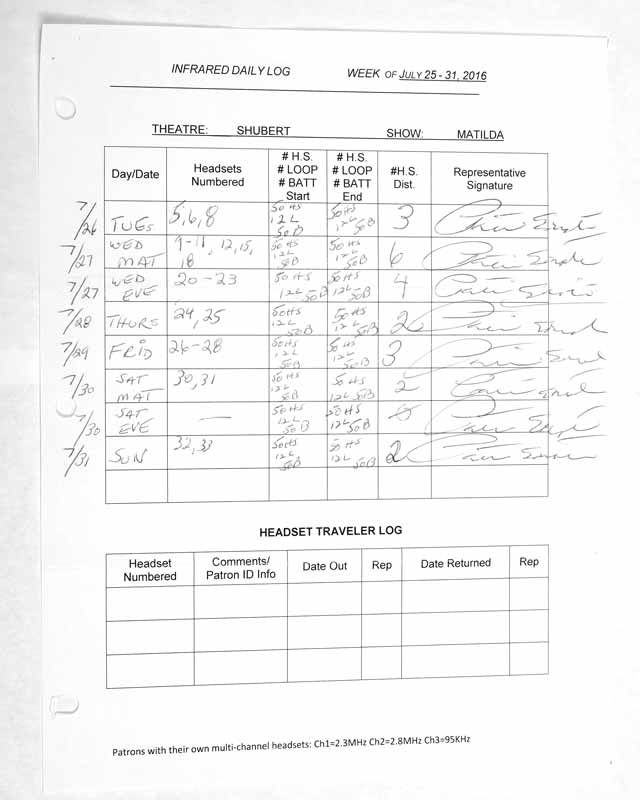 INFRARED DAILY LOG WEEK OF JULY 25 - 31, 2016
THEATRE: SHUBERT SHOW: MATILDA
Day/Date Headsets Numbered # H.S. # LOOP # BATT Start # H.S. # LOOP # BATT End #H.S. Dist. Representative Signature
7/26 TUES 5,6,8 50HS 12L 50B 50HS 12L 50B 3
7/27 WED MAT 12,15, 18 50HS 12L 50B 50HS 12L 50B 6
7/27 WED EVE 20-23 50HS 12L 50B 50HS 12L 50B 4
7/28 THURS 24,25 50HS 12L 50B 50HS 12L 50B 2
7/29 FRID 26-28 50HS 12L 50B 50HS 12L 50B 3
7/30 SAT MAT 30,31 50HS 12L 50B 50HS 12L 50B 2
7/30 SAT EVE — 50HS 12L 50B 50HS 12L 50B
7/31 SUN 32,33 50HS 12L 50B 50HS 12L 50B 2
HEADSET TRAVELER LOG
Headset Numbered Comments/ Patron ID Info Date Out Rep Date Returned Rep
Patrons with their own multi-channel headsets: Ch1=2.3MHz Ch2=2.8MHz Ch3=95KHz